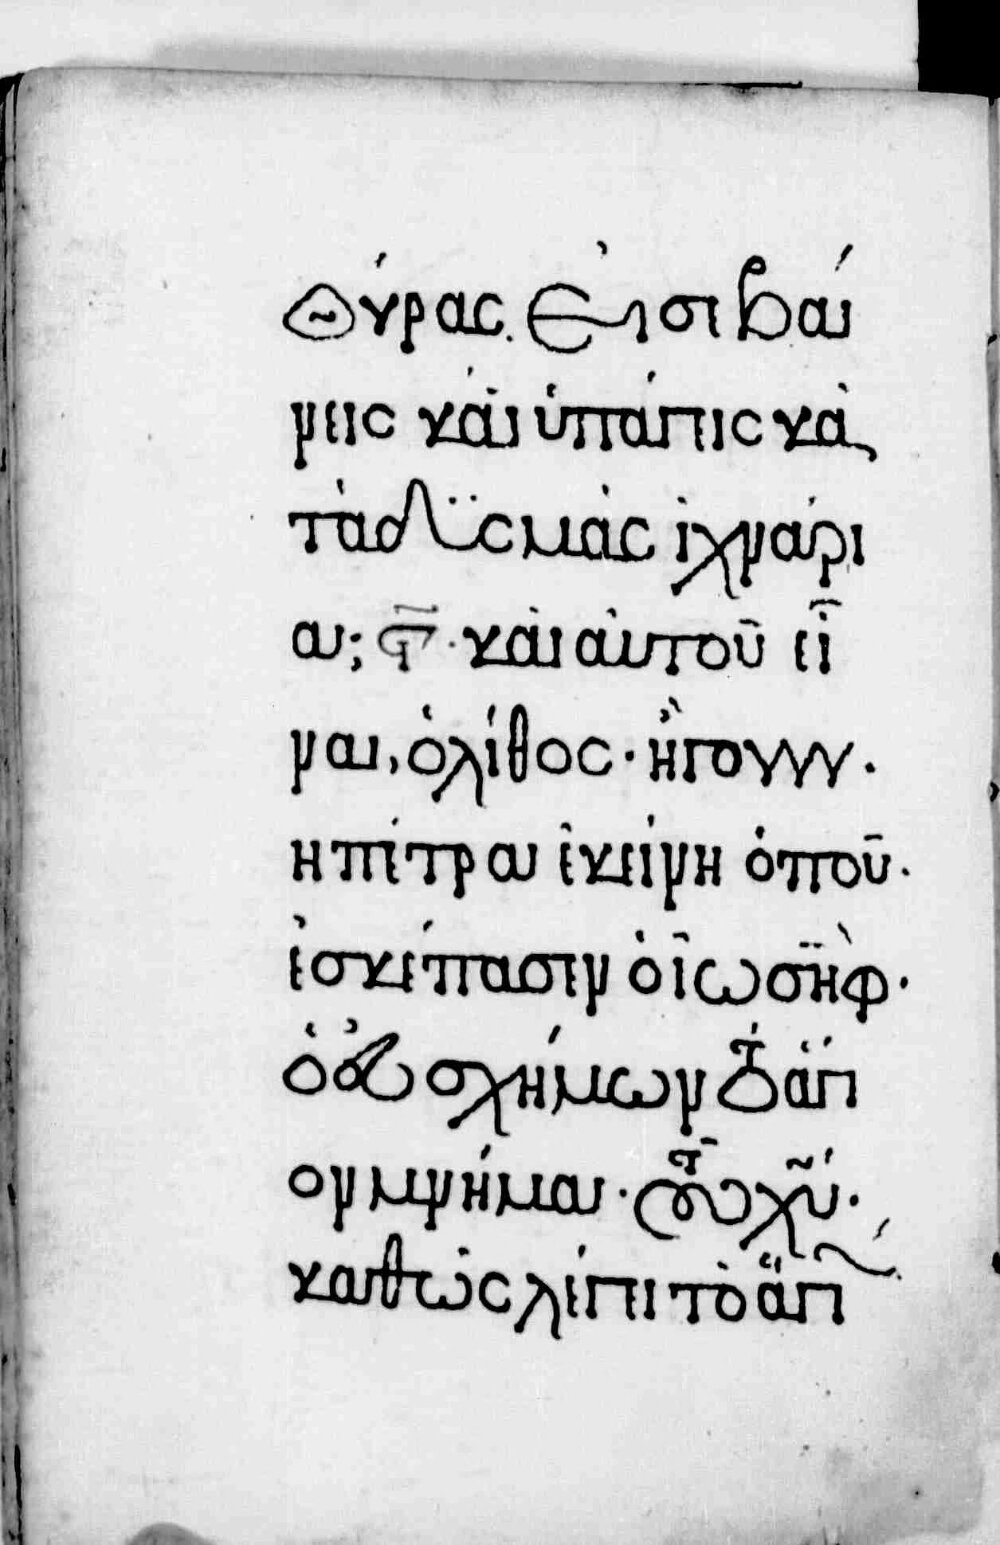 Θύρας. Ἐισεβαί
νεις κὰι ὑπάγεις κὰ
τὰ δϋσμὰς ἰχνάρι
α; ϛ̄· κὰι ἀυτοῦ εἶ
ναι, ὁ λίθος· ἤγουν·
η πέτρα ἐκείνη ὁποῦ·
ἐσκέπασεν ὁ ἰωσὴφ·
ὁ ἐυσχήμων τὸ ἅγι
ον μνήμα· τοῦ χῦ·
καθὼς λέγει τὸ ἅγι